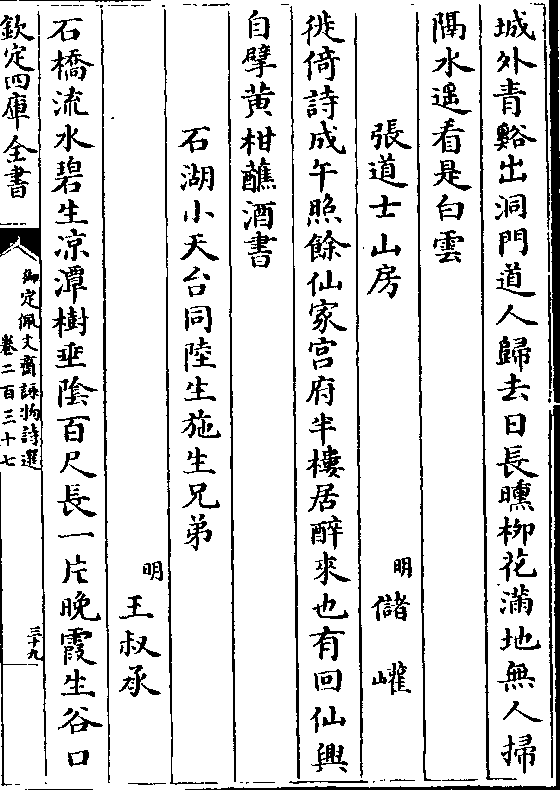 城外青谿出洞門道人歸去日長曛栁花滿地無人掃
隔水遥看是白雲
張道士山房
明儲巏
徙倚詩成午照餘仙家宫府半樓居醉來也有回仙興
自擘黄柑蘸酒書
石湖小天台同陸生施生兄弟
明王叔承
石橋流水碧生凉潭樹垂隂百尺長一片晚霞生谷口
欽定四庫全書
御定佩文齋詠物詩選
卷二百三十七
三十九